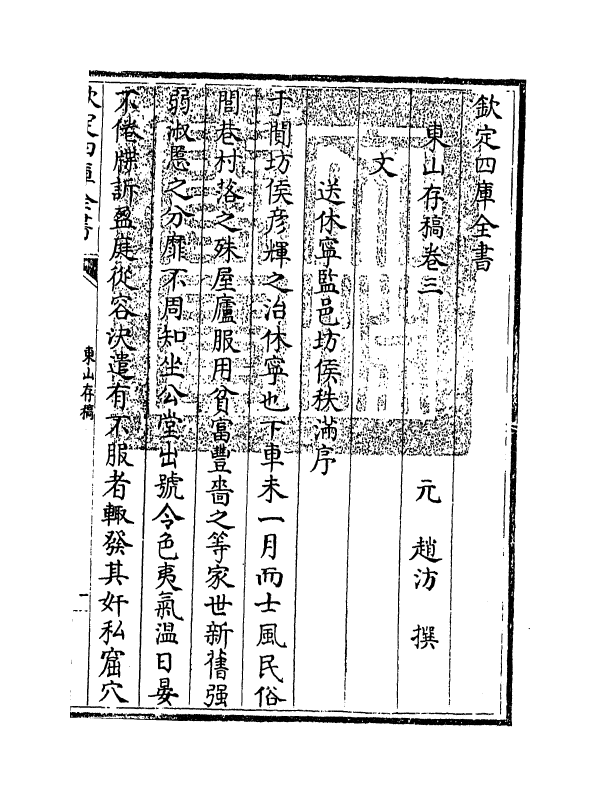 欽定四庫全書
東山存稿卷三
元 趙汸 撰
文
送休寧監邑坊侯秩滿序
于闐坊侯彦輝之治休寧也下車未一月而士風民俗
閭巷村落之殊屋廬服用貧富豐嗇之等家世新舊强
弱淑慝之分靡不周知坐公堂出號令色夷氣温日晏
不倦牒訴盈庭從容決遣有不服者輙發其奸私窟穴
欽定四庫全書
東山存稿
一